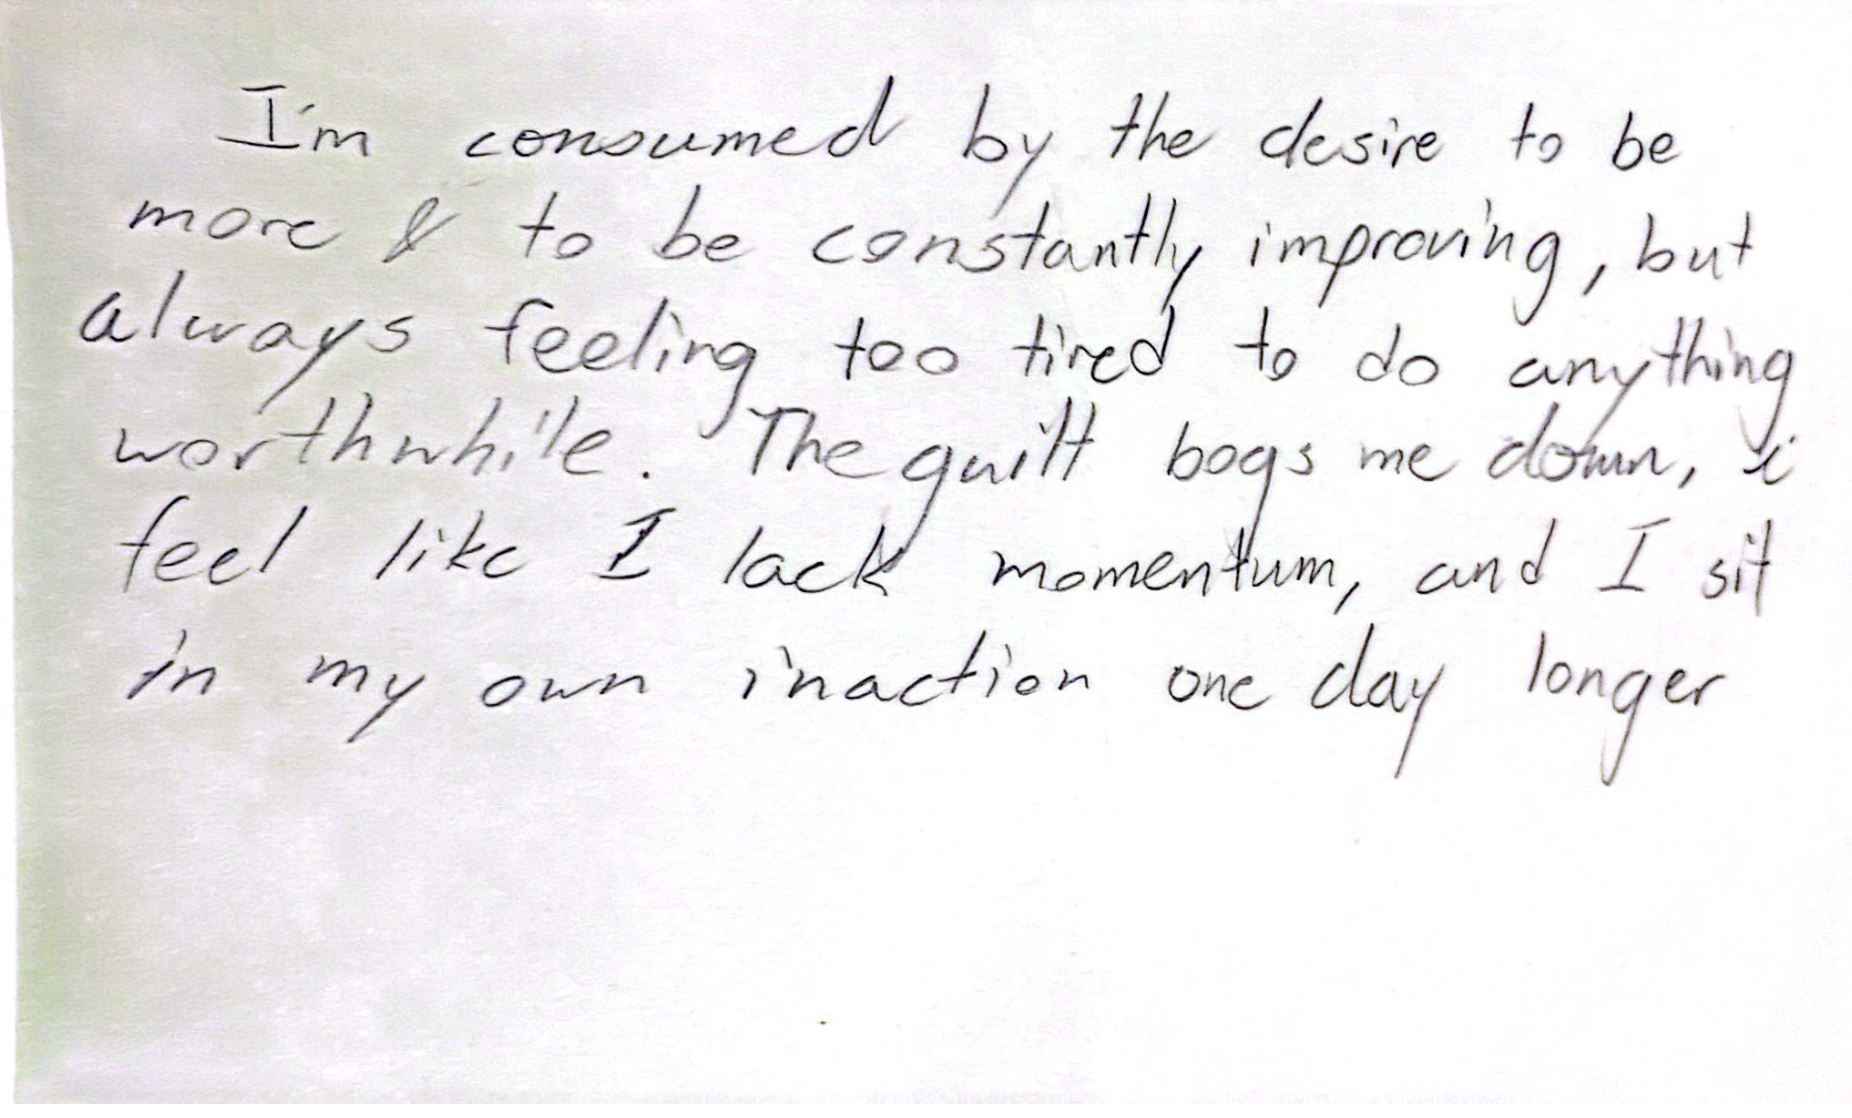 I'm consumed by the desire to be
more & to be constantly improving, but
always feeling too tired to do anything
worthwhile. The guilt bogs me down, i
feel like I lack momentum, and I sit
in my own inaction one day longer